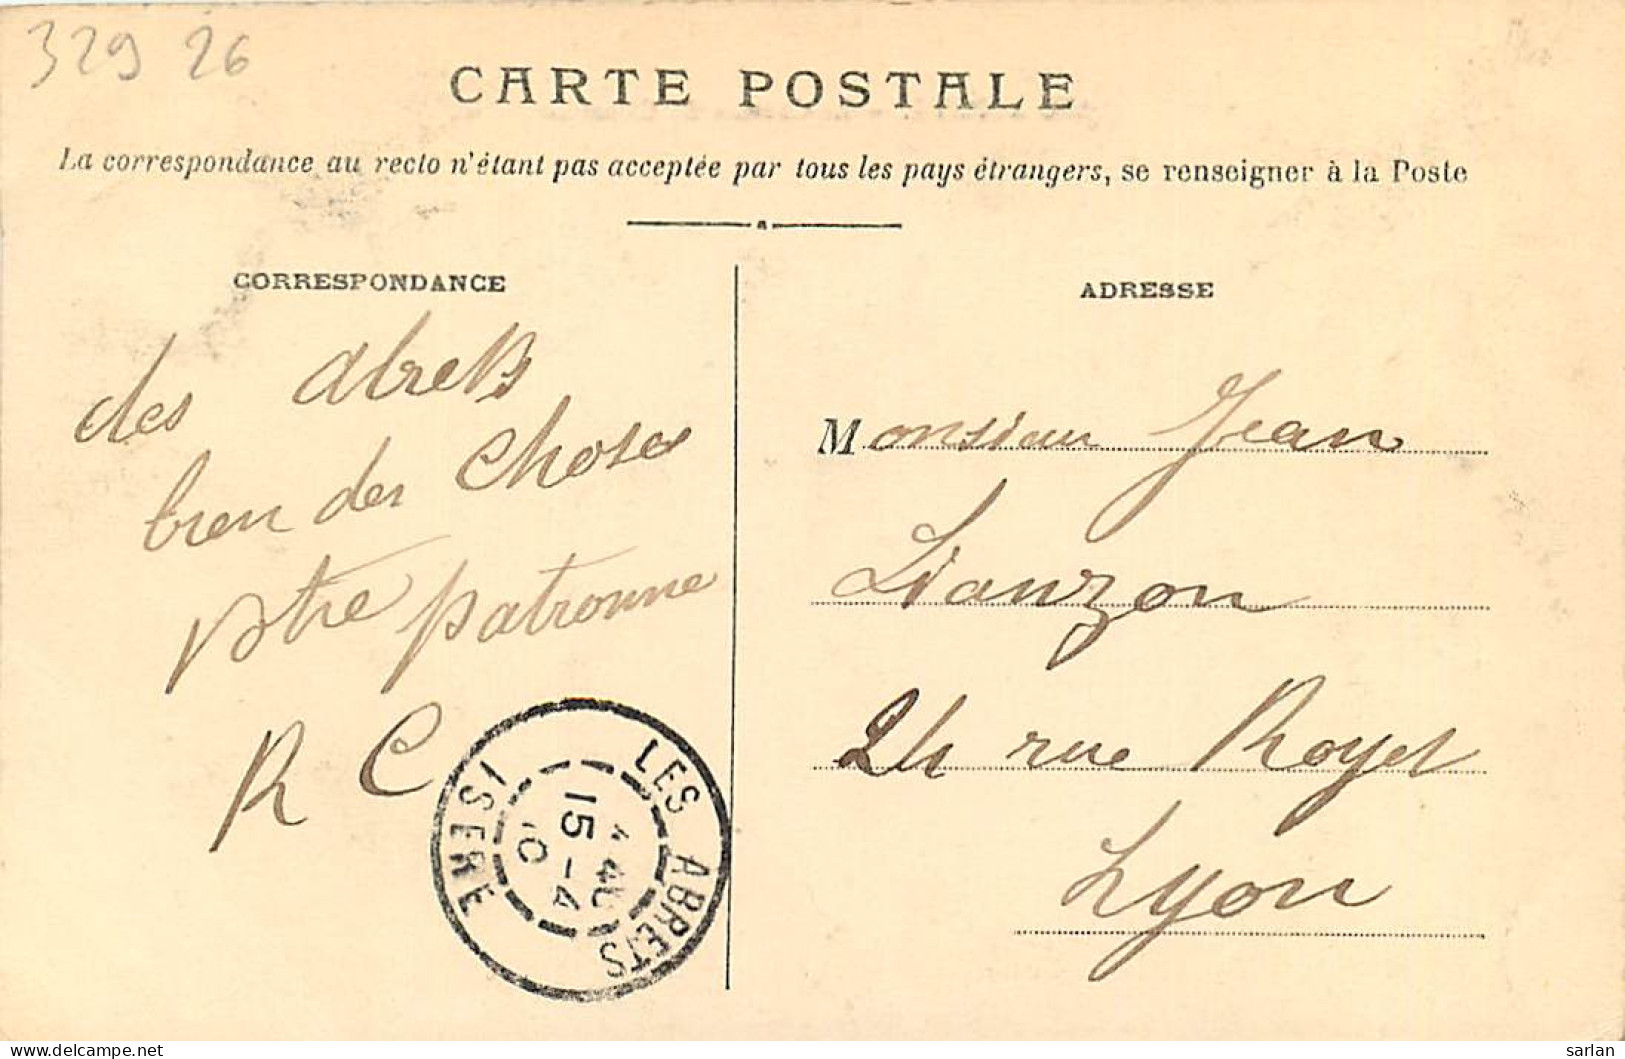 329 26
CARTE POSTALE
La correspondance au recto n'étant pas acceptée par tous les pays étrangers, se renseigner à la Poste
CORRESPONDANCE
des abrets
bien des choses
votre patronne
R C
LES ABRETS
15 - 4
10
ISERE
ADRESSE
Monsieur Jean
Lianzon
24 rue Royet
Lyon
delcampe.net
sarlan